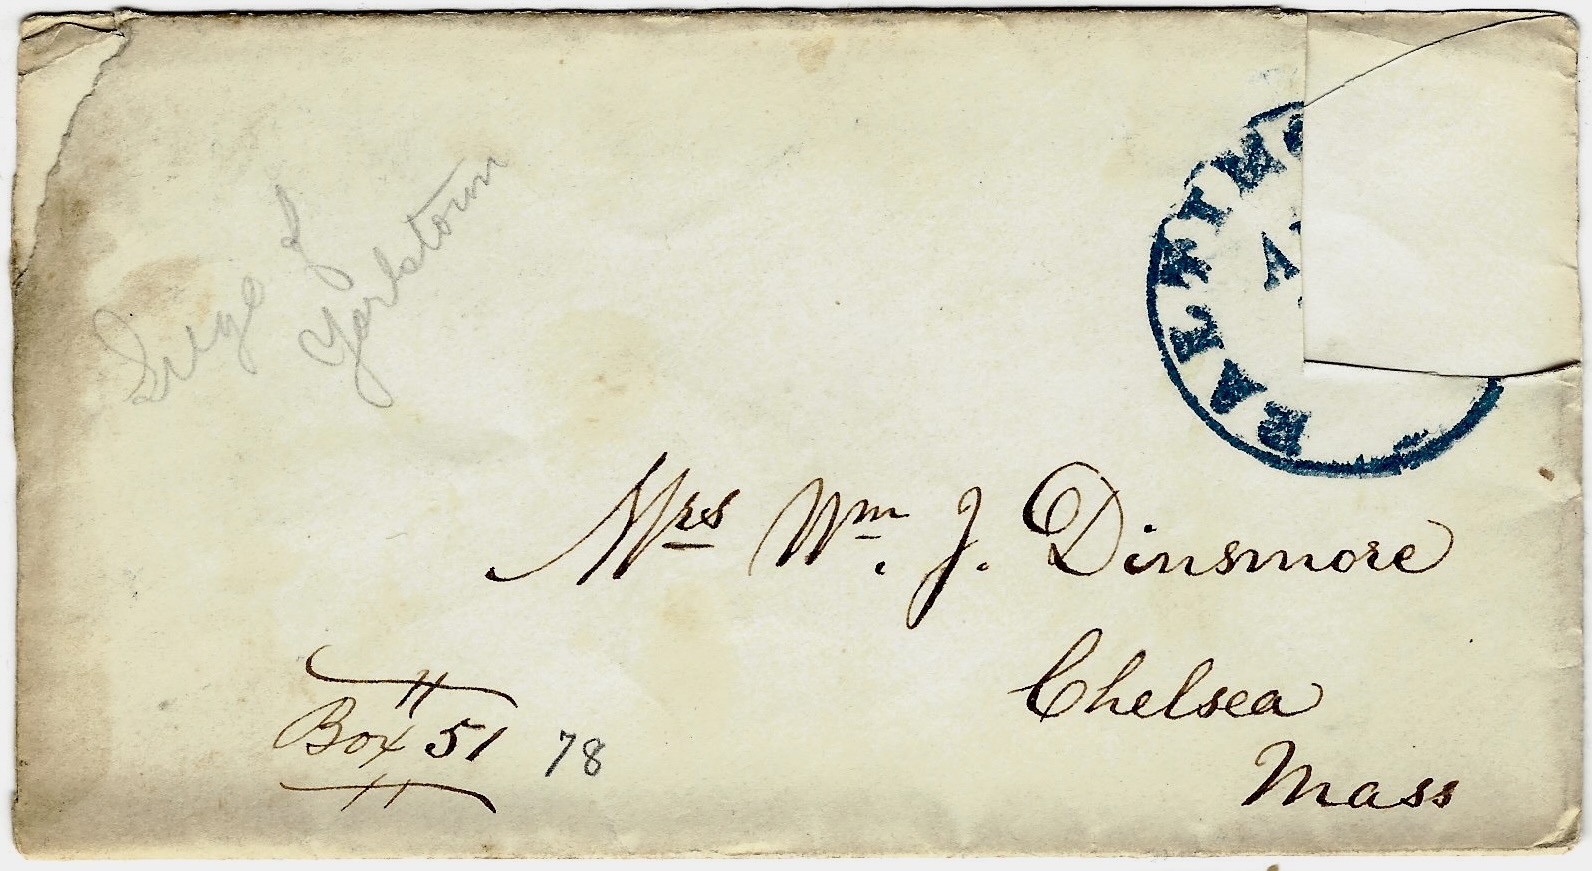 Siege of
Yorktown
BALTIMO
A
Mrs Wm. J. Dinsmore
Chelsea
Mass
Box 51
78